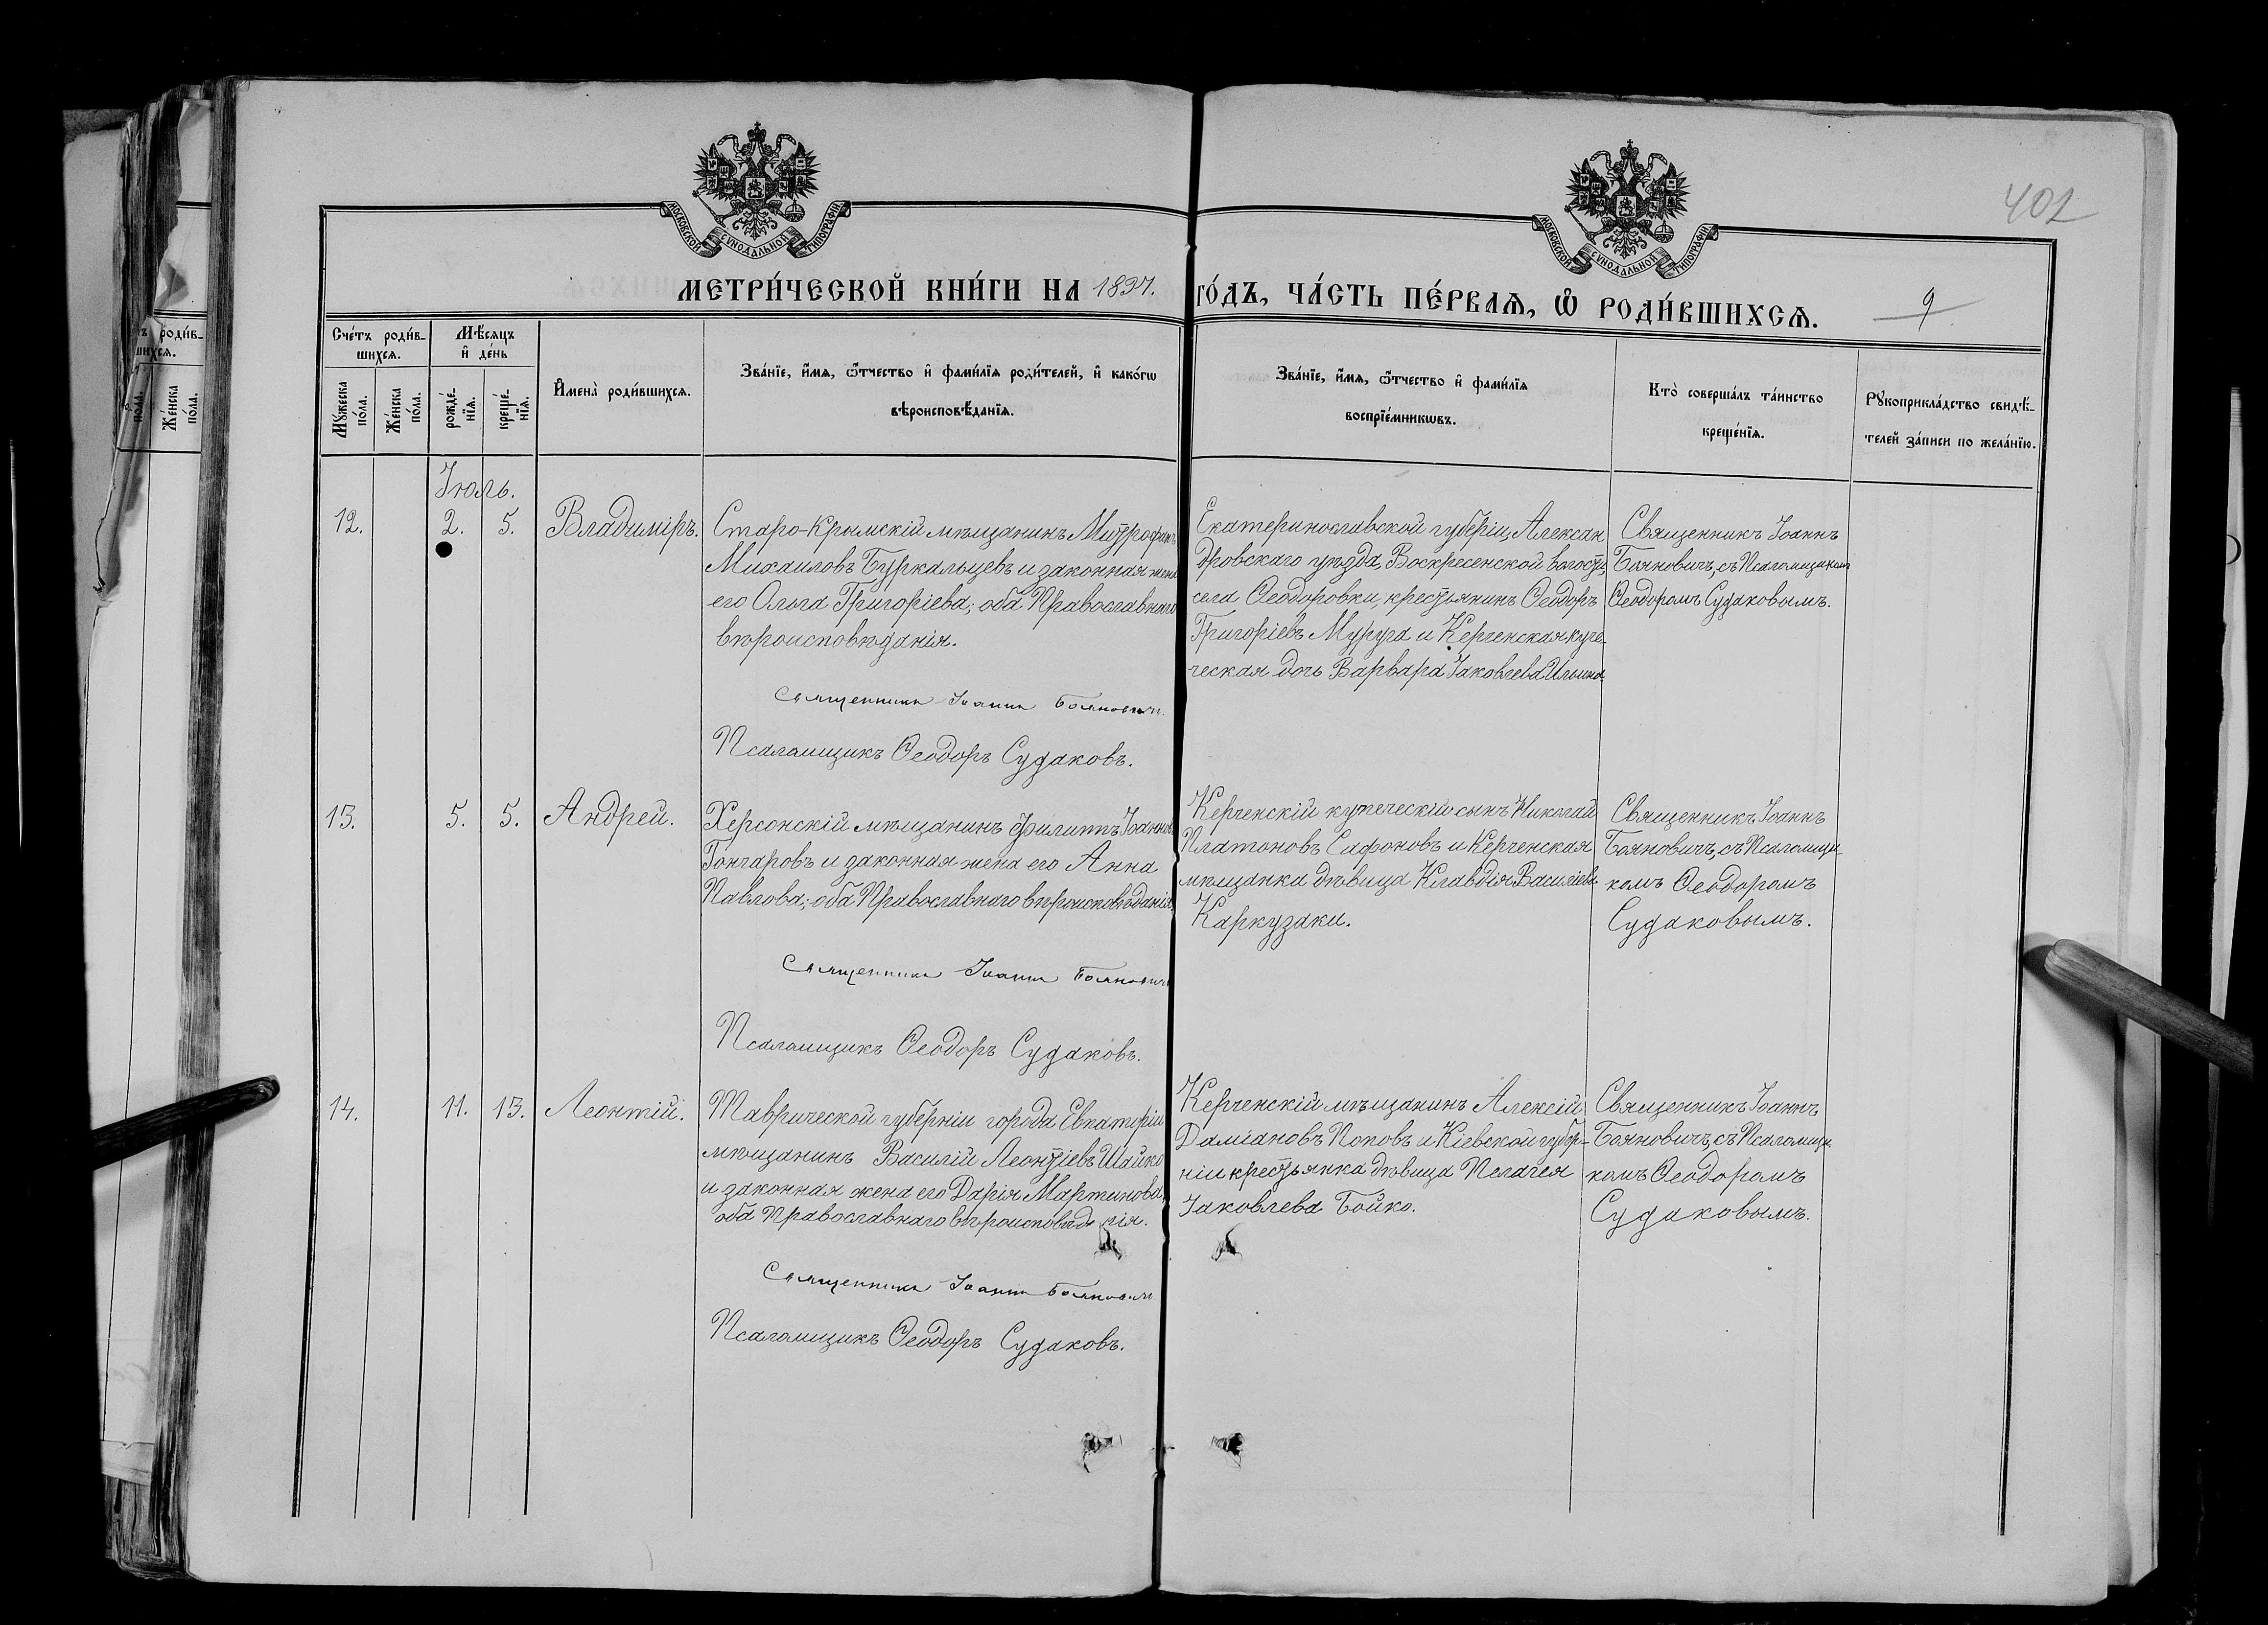 МОСКОВСКОЙ СѴНОДАЛЬНОЙ ТИПОГРАФІИ
МОСКОВСКОЙ СѴНОДАЛЬНОЙ ТИПОГРАФІИ
402
МЕТРИ́ЧЕСКОЙ КНИ́ГИ НА 1897. ГО́ДЪ, ЧА́СТЬ ПЕ́РВАѦ, Ѡ҆ РОДИ́ВШИХСѦ.
9
Сче́тъ роди́в-
шихсѧ.
Мѣ́сѧцъ
и҆ де́нь
Мꙋ́жеска
по́ла.
Же́нска
по́ла.
рожде́-
нїѧ.
креще́-
нїѧ.
И҆мена̀ роди́вшихсѧ.
Зва́нїе, и҆́мѧ, ѻ҆́тчество и҆ фами́лїѧ роди́телей, и҆ како́гѡ
вѣроисповѣ́данїѧ.
Зва́нїе, и҆́мѧ, ѻ҆́тчество и҆ фами́лїѧ
воспрїе́мникѡвъ.
Кто̀ соверша́лъ та́инство
креще́нїѧ.
Рꙋкоприкла́дство свидѣ́-
телей за́писи по жела́нїю.
Іюль.
12.
2.
5.
Владиміръ.
Старо-Крымскій мѣщанинъ Митрофанъ
Михаиловъ Буркальцевъ и законная жена
его Ольга Григоріева; оба Православнаго
вѣроисповѣданія.
Священникъ Іоаннъ Бояновичъ.
Псаломщикъ Ѳеодоръ Судаковъ.
Екатеринославской губерніи, Алексан
дровскаго уѣзда, Воскресенской волости,
села Ѳеодоровки, крестьянинъ Ѳеодоръ
Григоріевъ Муруга и Керченская купе-
ческая дочь Варвара Іаковлева Ильина.
Священникъ Іоаннъ
Бояновичъ, съ Псаломщикомъ
Ѳеодоромъ Судаковымъ.
13.
5.
5.
Андрей.
Херсонскій мѣщанинъ Филиппъ Іоанновъ
Гончаровъ и законная жена его Анна
Павлова; оба Православнаго вѣроисповѣданія.
Священникъ Іоаннъ Бояновичъ
Псаломщикъ Ѳеодоръ Судаковъ.
Керченскій купеческій сынъ Николай
Платоновъ Сафоновъ и Керченская
мѣщанка дѣвица Клавдія Василіева
Каркузаки.
Священникъ Іоаннъ
Бояновичъ, съ Псаломщи-
комъ Ѳеодоромъ
Судаковымъ.
14.
11.
13.
Леонтій.
Таврической губерніи города Евпаторіи
мѣщанинъ Василій Леонтіевъ Шайко
и законная жена его Дарія Мартинова,
оба Православнаго вѣроисповѣданія.
Священникъ Іоаннъ Бояновичъ
Псаломщикъ Ѳеодоръ Судаковъ.
Керченскій мѣщанинъ Алексій
Даміановъ Поповъ и Кіевской губер-
ніи крестьянка дѣвица Пелагея
Іаковлева Бойко.
Священникъ Іоаннъ
Бояновичъ, съ Псаломщи-
комъ Ѳеодоромъ
Судаковымъ.